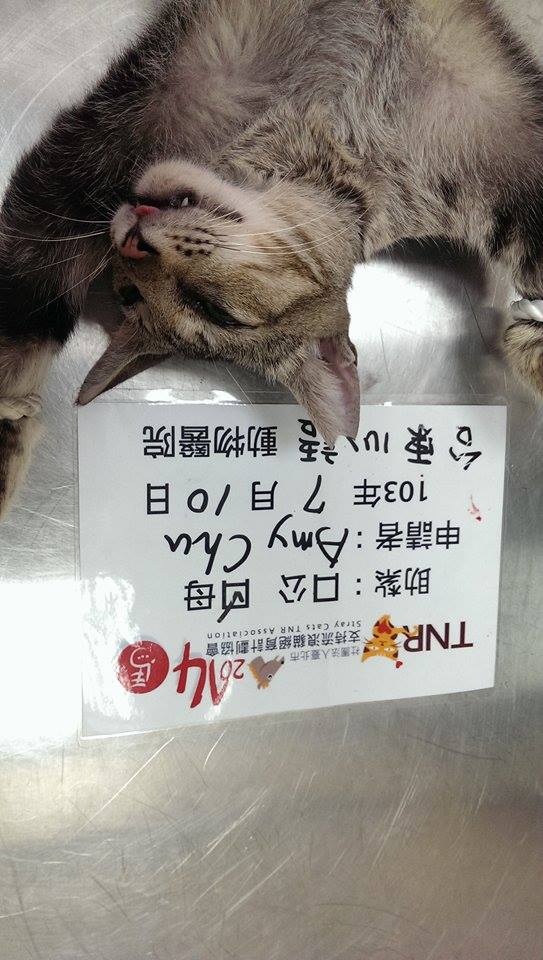 TNR
社團法人臺北市
支持流浪貓絕育計劃協會
Stray Cats TNR Association
2014
助紮：□公 ☑母
申請者：Amy Chu
103年 7月10日
台東 動物醫院